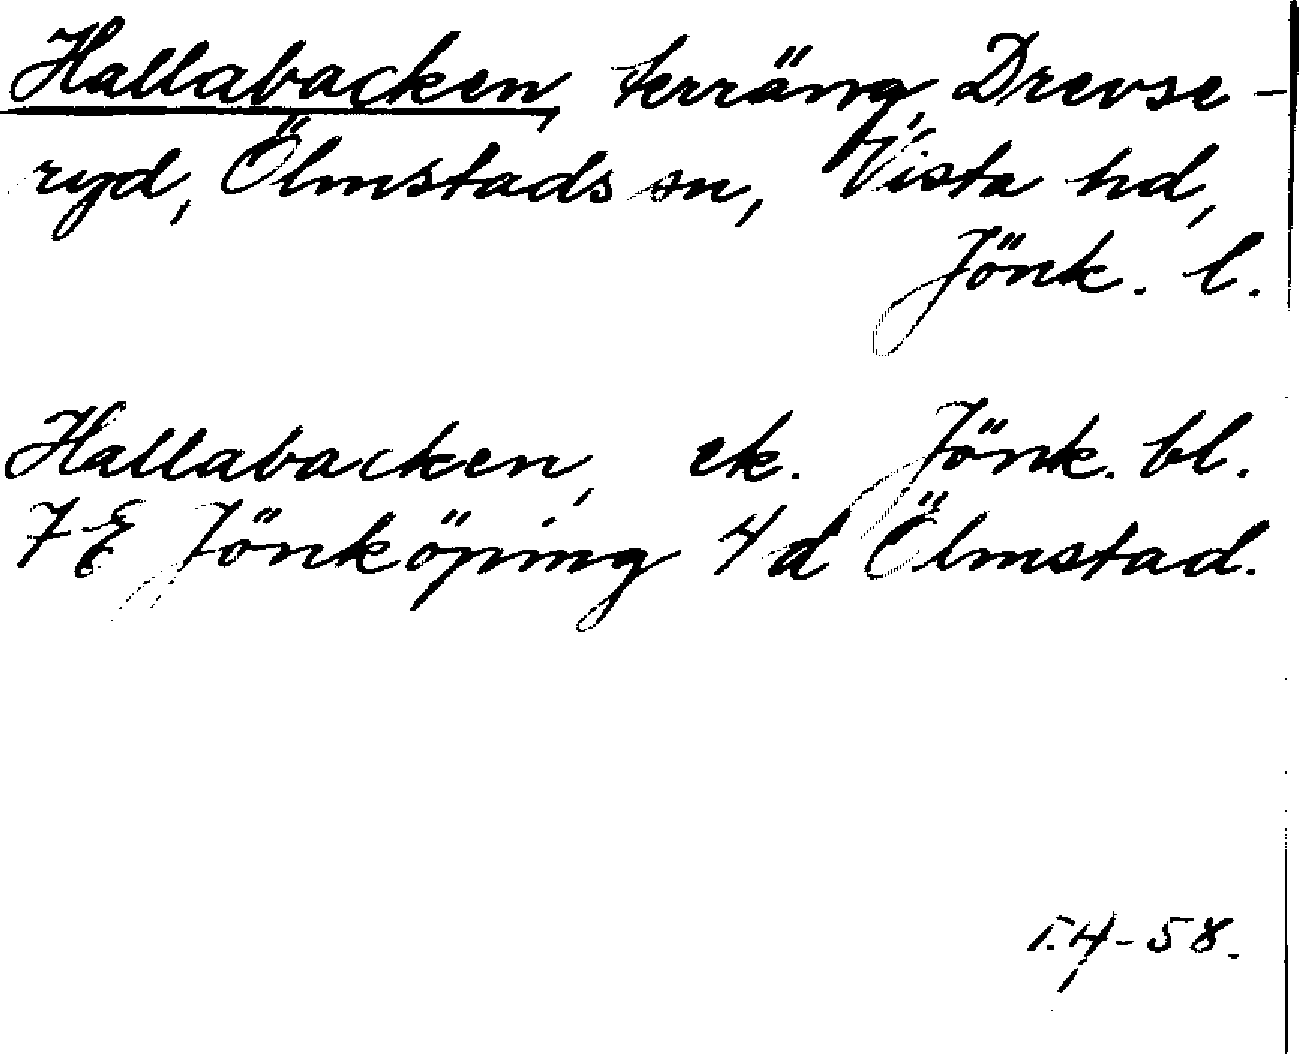 Hallabacken, terräng, Drevse-
ryd, Ölmstads sn, Vista hd,
Jönk. l.
Hallabacken, ek. Jönk. bl.
7E Jönköping 4d Ölmstad.
T.4-58.